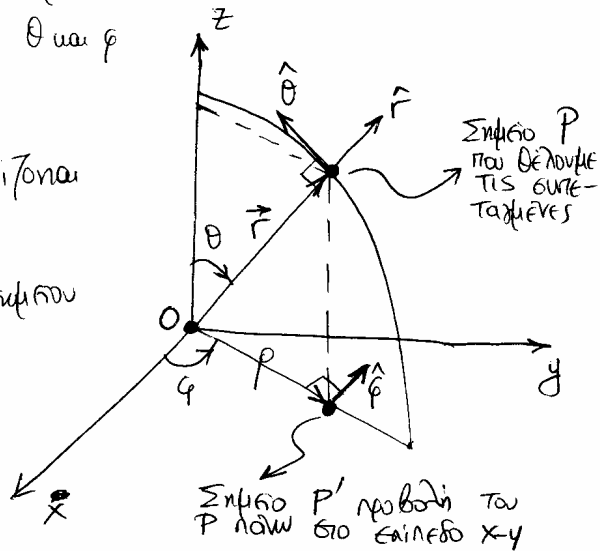 θ και φ
z
θ̂
r̂
Σημείο P
που θέλουμε
τις συντε-
ταγμένες
ίζονται
θ
r⃗
ημείου
O
φ
ρ
φ̂
y
x
Σημείο P' προβολή του
P πάνω στο επίπεδο x-y